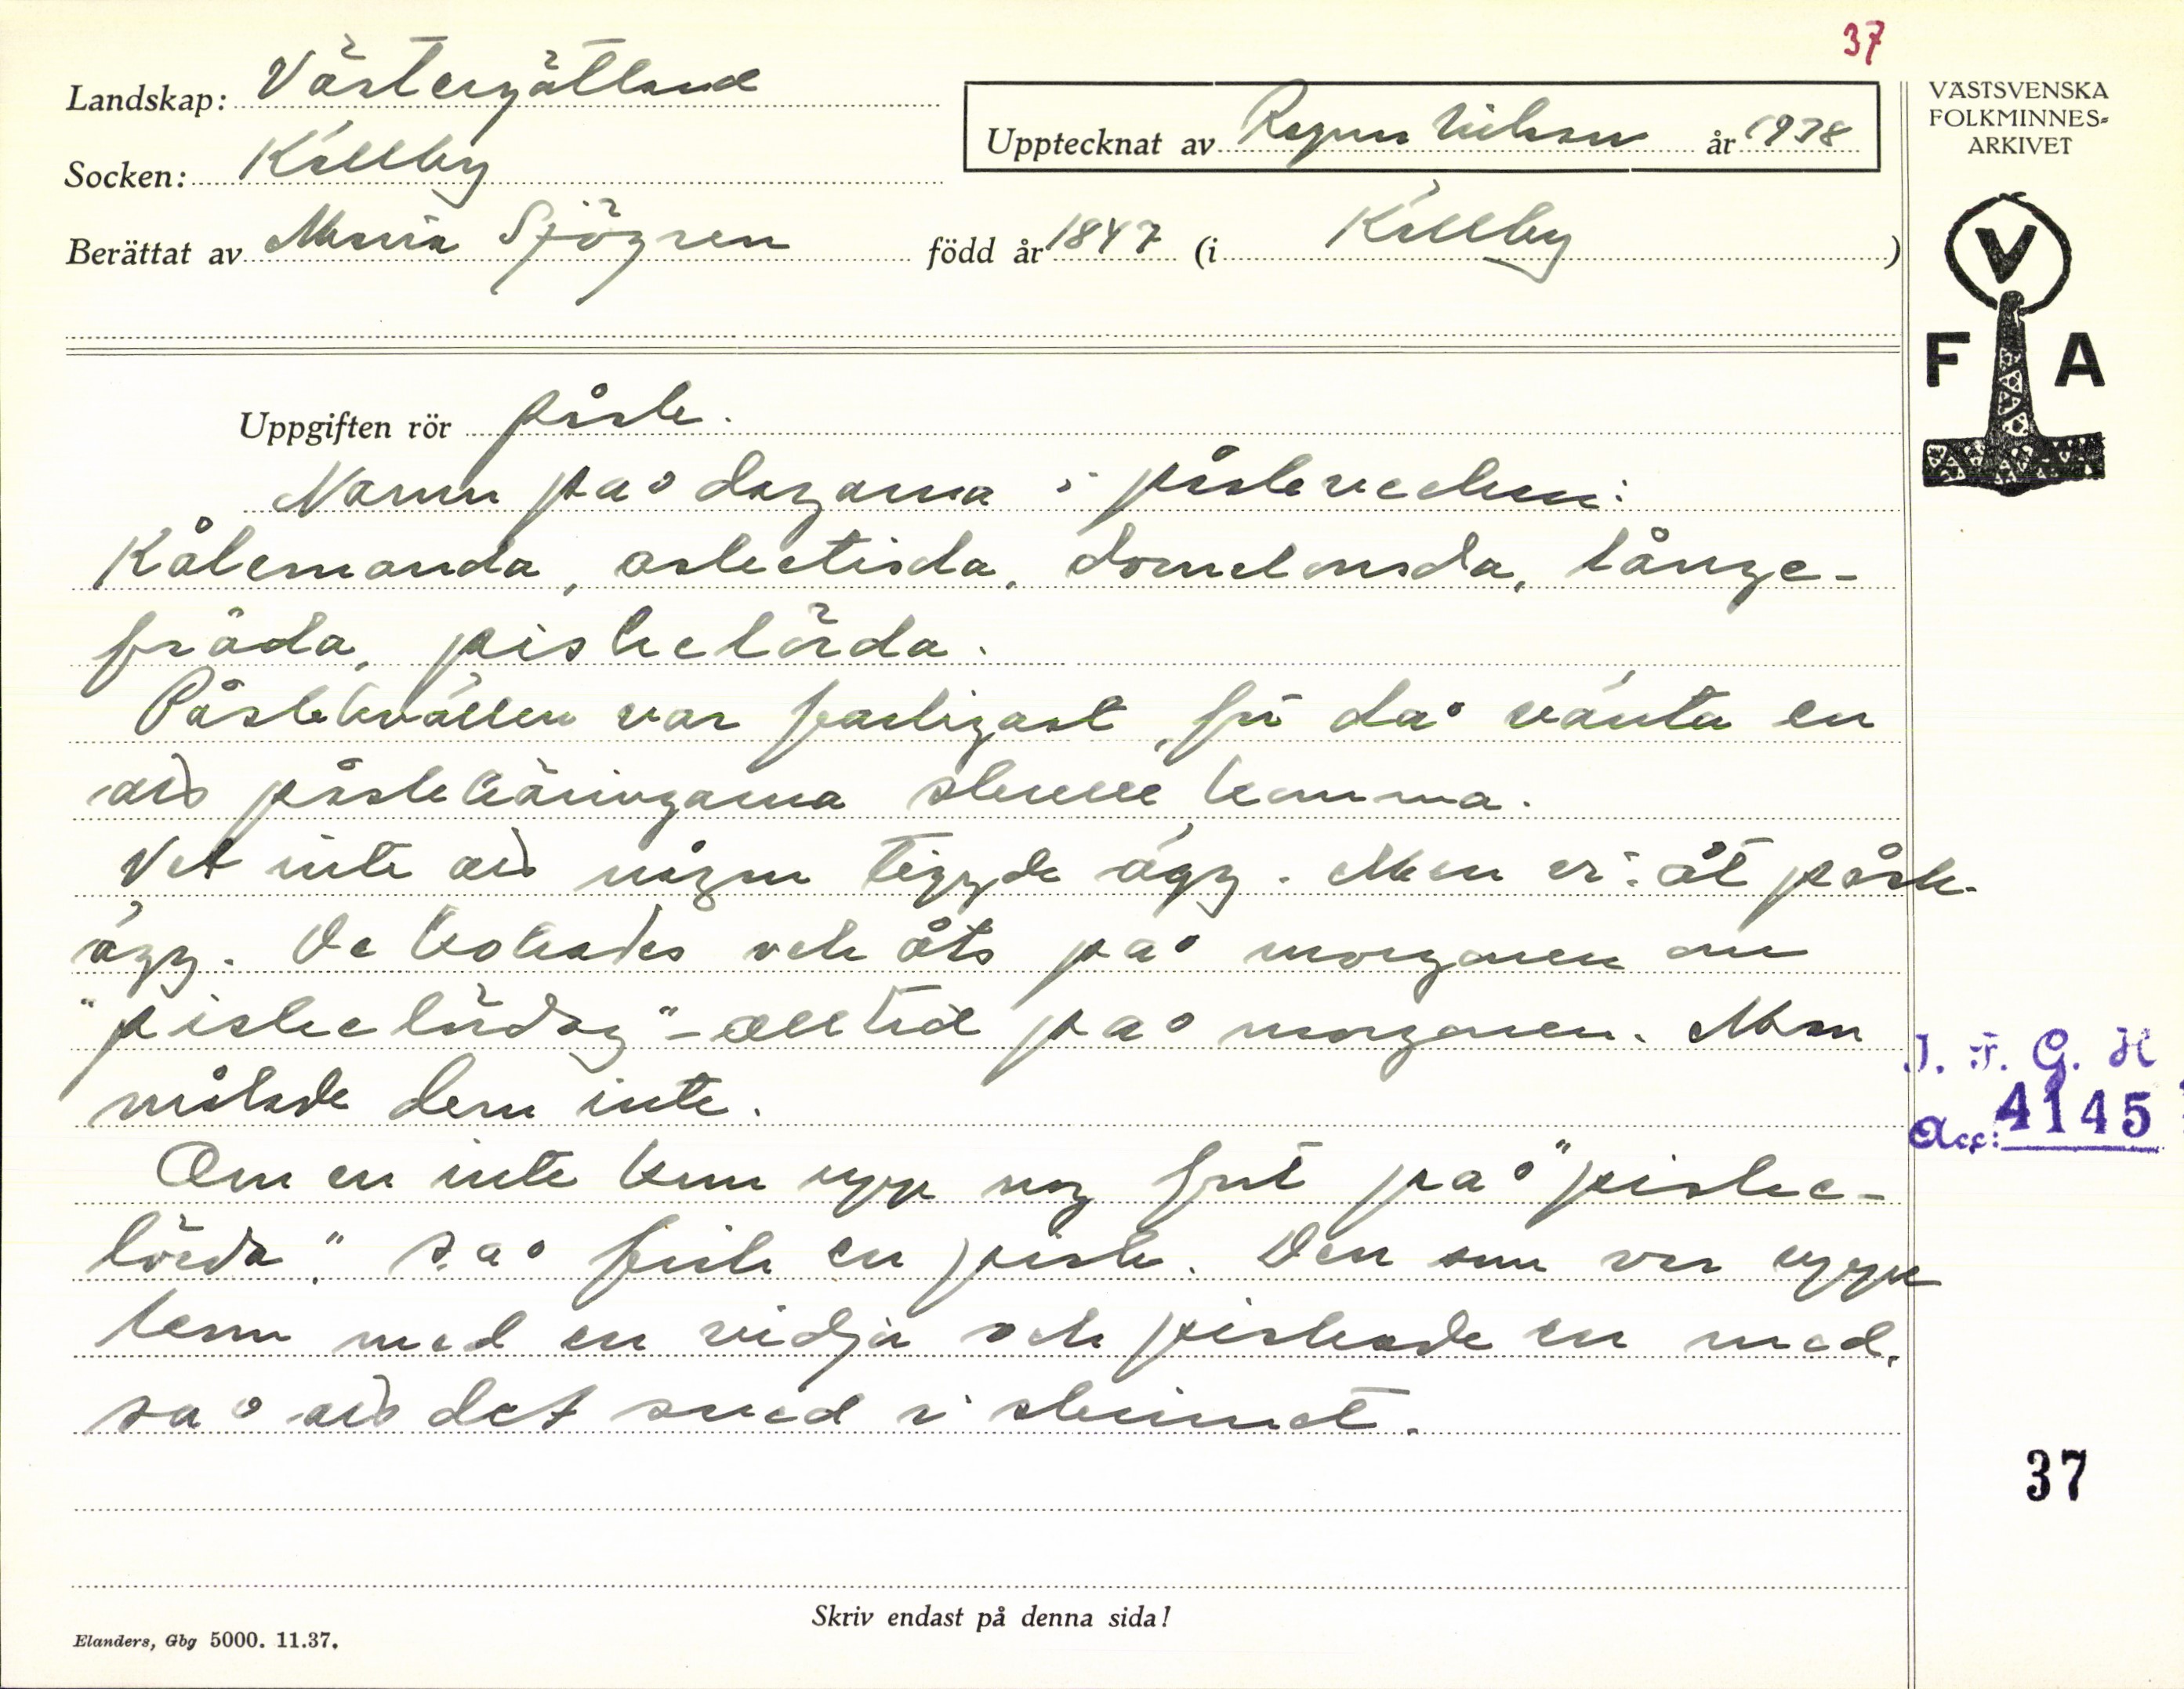 37
Landskap: Västergötland
Upptecknat av Ragnar Nilsson år 1938
VÄSTSVENSKA
FOLKMINNES=
ARKIVET
Socken: Källby
Berättat av Maria Sjögren född år 1847 (i Källby)
V
F A
Uppgiften rör påsk.
Namn på dagarna i påskveckan:
Kålemånda, asketisda, domelonsda, långe-
fräda, piskelörda.
Påskkvällen var farligast, för då vänta en
att påskkäringarna skulle komma.
Vet inte att någon tiggde ägg. Men vi åt påsk-
ägg. De kokades och åts på morgonen om
"piskelördag" - alltid på morgonen. Man
målade dem inte.
Om en inte kom upp nog fort på "piske-
lörda", så fick en pisk. Den som var uppe
kom med en vidja och piskade en med,
så att det sved i skinnet.
I. F. G. H
Acc: 4145
37
Skriv endast på denna sida!
Elanders, Gbg 5000. 11.37.